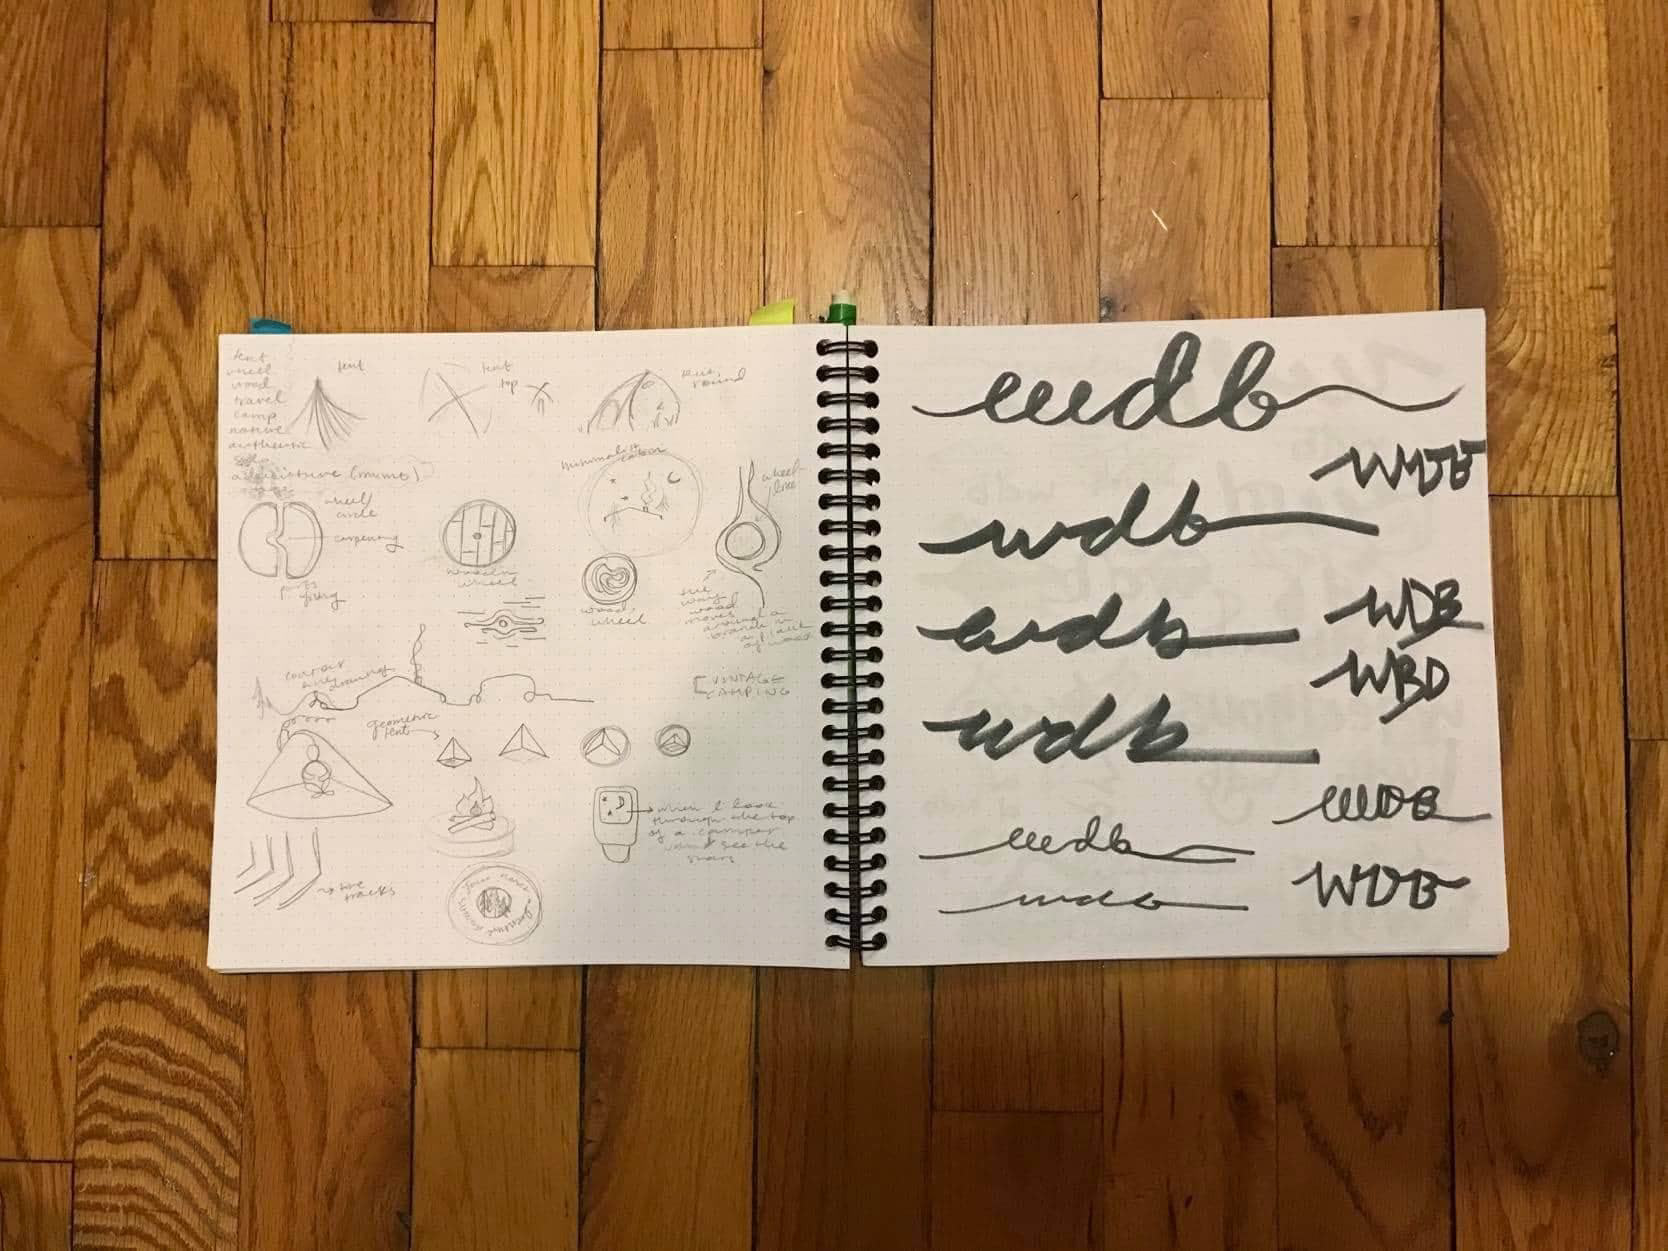 tent
wheel
wood
travel
camp
native
authentic
adventure (mimo)
tent
tent
top
tent,
round
minimalist
wheel
circle
carpentry
wooden
wheel
wood,
wheel
wheel
tree
the
way
wood
moves
around a
branch in
a plack
of wood
contour
line
drawing
[VINTAGE
CAMPING
geometric
tent
when I look
through the top
of a camper
and see the
stars
tire
tracks
wdb
wdb
wdb
WDB
wdb
WBD
wdb
WDB
wdb
WDB
wdb